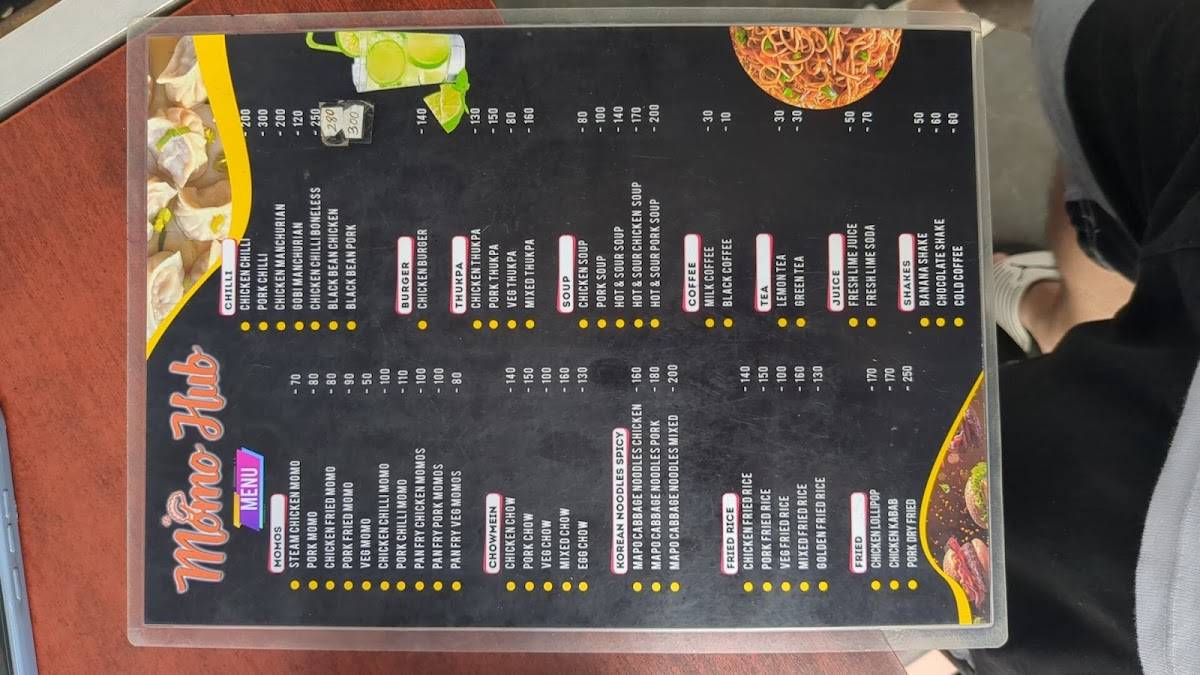 Momo Hub
MENU
MOMOS
STEAM CHICKEN MOMO - 70
PORK MOMO - 80
CHICKEN FRIED MOMO - 80
PORK FRIED MOMO - 90
VEG MOMO - 50
CHICKEN CHILLI MOMO - 100
PORK CHILLI MOMO - 110
PAN FRY CHICKEN MOMOS - 100
PAN FRY PORK MOMOS - 100
PAN FRY VEG MOMOS - 80
CHOWMEIN
CHICKEN CHOW - 140
PORK CHOW - 150
VEG CHOW - 100
MIXED CHOW - 160
EGG CHOW - 130
KOREAN NOODLES SPICY
MAPO CABBAGE NOODLES CHICKEN - 160
MAPO CABBAGE NOODLES PORK - 180
MAPO CABBAGE NOODLES MIXED - 200
FRIED RICE
CHICKEN FRIED RICE - 140
PORK FRIED RICE - 150
VEG FRIED RICE - 100
MIXED FRIED RICE - 160
GOLDEN FRIED RICE - 130
FRIED
CHICKEN LOLLIPOP - 170
CHICKEN KABAB - 170
PORK DRY FRIED - 250
CHILLI
CHICKEN CHILLI - 200
PORK CHILLI - 300
CHICKEN MANCHURIAN - 200
GOBI MANCHURIAN - 120
CHICKEN CHILLI BONELESS - 250
BLACK BEAN CHICKEN 280
BLACK BEAN PORK 300
BURGER
CHICKEN BURGER - 140
THUKPA
CHICKEN THUKPA - 130
PORK THUKPA - 150
VEG THUKPA - 80
MIXED THUKPA - 160
SOUP
CHICKEN SOUP - 80
PORK SOUP - 100
HOT & SOUR SOUP - 140
HOT & SOUR CHICKEN SOUP - 170
HOT & SOUR PORK SOUP - 200
COFFEE
MILK COFFEE - 30
BLACK COFFEE - 10
TEA
LEMON TEA - 30
GREEN TEA - 30
JUICE
FRESH LIME JUICE - 50
FRESH LIME SODA - 70
SHAKES
BANANA SHAKE - 50
CHOCOLATE SHAKE - 60
COLD COFFEE - 60